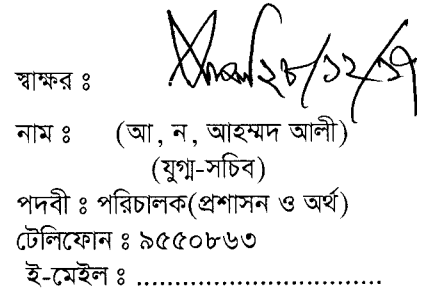 স্বাক্ষর ঃ ২৮/১২/১৭
নাম ঃ (আ, ন, আহম্মদ আলী)
(যুগ্ম-সচিব)
পদবী ঃ পরিচালক(প্রশাসন ও অর্থ)
টেলিফোন ঃ ৯৫৫০৮৬৩
ই-মেইল ঃ ................................